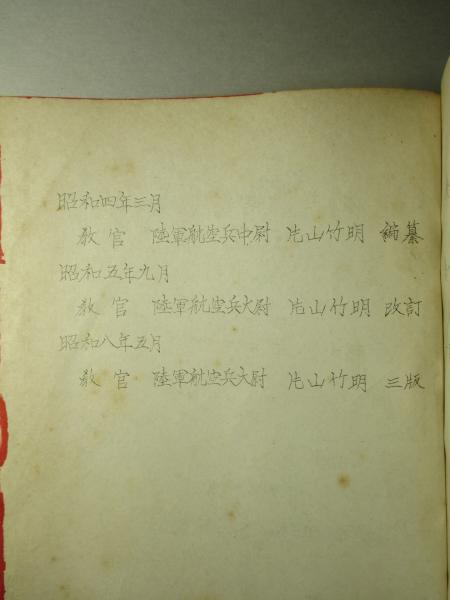 昭和四年三月
教官 陸軍航空兵中尉 片山竹明 編纂
昭和五年九月
教官 陸軍航空兵大尉 片山竹明 改訂
昭和八年五月
教官 陸軍航空兵大尉 片山竹明 三版